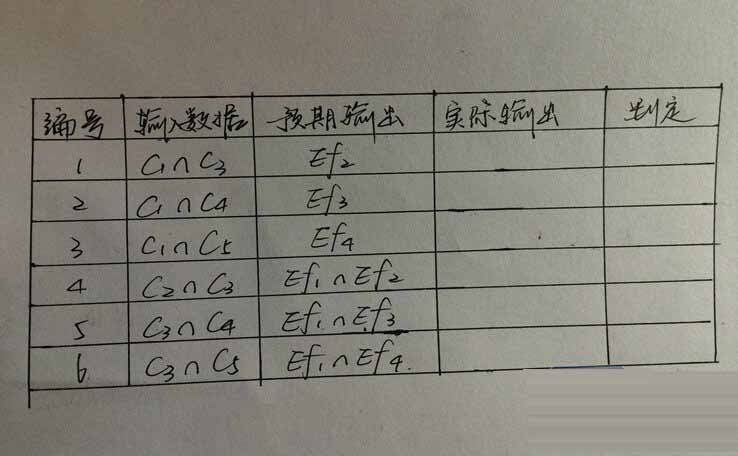 编号 输入数据 预期输出 实际输出 判定
1 C₁∩C₃ Ef₂
2 C₁∩C₄ Ef₃
3 C₁∩C₅ Ef₄
4 C₂∩C₃ Ef₁∩Ef₂
5 C₃∩C₄ Ef₁∩Ef₃
6. C₃∩C₅ Ef₁∩Ef₄.